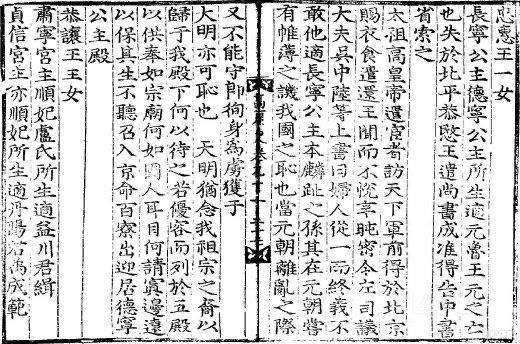 忠惠王一女
長寧公主德寧公主所生適元魯王元之亡
也失於北平恭愍王遣尚書成准得告中書
省索之
太祖高皇帝遣宦者訪天下軍前得於北京
賜衣食遣還王聞而不悅辛旽密令左司議
大夫吳中陸等上書曰婦人從一而終義不
敢他適長寧公主本麟趾之孫其在元朝嘗
有帷薄之譏我國之恥也當元朝離亂之際
高麗史卷九十一
又不能守節徇身為虜獲于
大明亦可恥也 天明猶念我祖宗之裔以
歸于我殿下何以待之若優容而列於五殿
以供奉如宗廟何如國人耳目何請寘邊遠
以保其生不聽召入京命百寮出迎居德寧
公主殿
恭讓王三女
肅寧宮主順妃盧氏所生適益川君緝
貞信宮主亦順妃所生適丹陽君禹成範